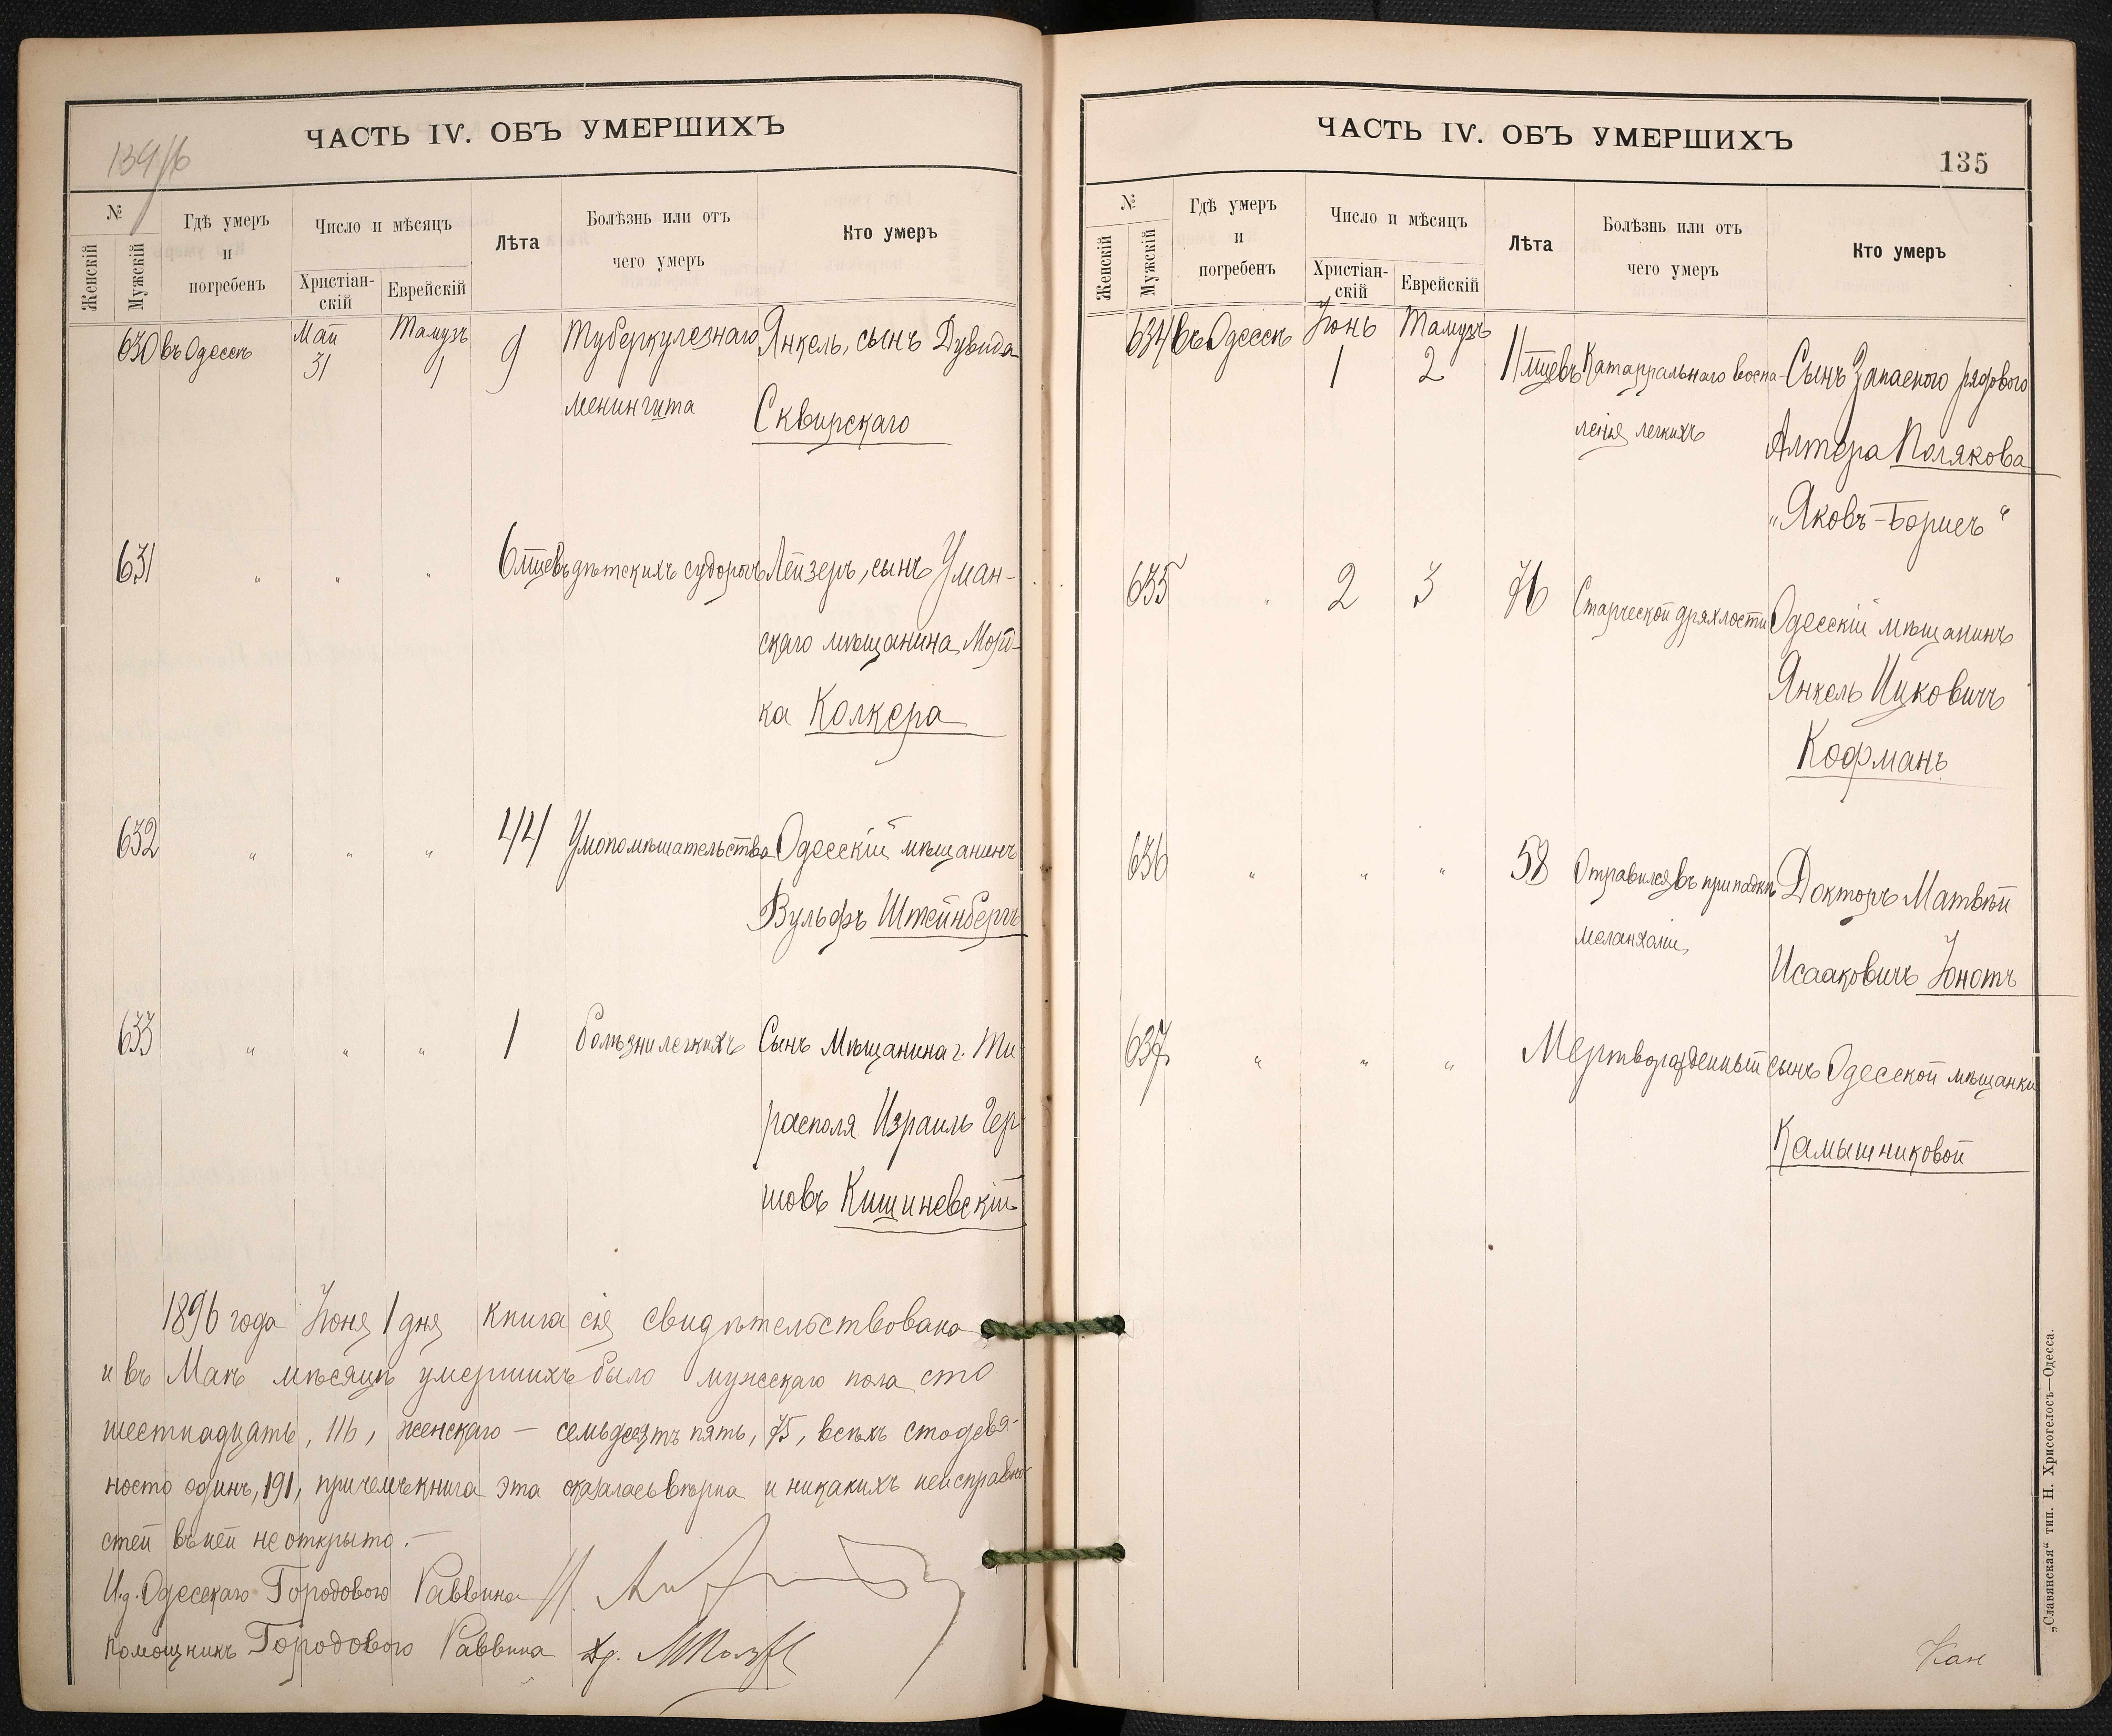 ЧАСТЬ IV. ОБЪ УМЕРШИХЪ
№
Женскій
Мужскій
Гдѣ умеръ
и
погребенъ
Число и мѣсяцъ
Христіан-
скій
Еврейскій
Лѣта
Болѣзнь или отъ
чего умеръ
Кто умеръ
630 въ Одессѣ Май 31 Тамузъ 1 9 Туберкулезнаго Янкель, сынъ Дувида
менингита Сквирскаго
631 " " " 6 мцевъ дѣтскихъ судорогъ Лейзеръ, сынъ Уман-
скаго мѣщанина Морд-
ка Колкера
632 " " " 44 Умопомѣшательства Одесскій мѣщанинъ
Вульфъ Штейнбергъ
633 " " " 1 болѣзни легкихъ Сынъ мѣщанина г. Ти-
располя Израиль Гер-
шовъ Кишиневскій
1896 года Іюня 1 дня книга сія свидѣтельствована
и въ Маѣ мѣсяцѣ умершихъ было мужескаго пола сто
шестнадцать, 116, женскаго — семьдесятъ пять, 75, всѣхъ сто девя-
носто одинъ, 191, причемъ книга эта оказалась вѣрна и никакихъ неисправно-
стей въ ней не открыто. —
И.д. Одесскаго Городового Раввина
Помощникъ Городового Раввина
ЧАСТЬ IV. ОБЪ УМЕРШИХЪ
135
№
Женскій
Мужскій
Гдѣ умеръ
и
погребенъ
Число и мѣсяцъ
Христіан-
скій
Еврейскій
Лѣта
Болѣзнь или отъ
чего умеръ
Кто умеръ
634 въ Одессѣ Іюнь 1 Тамузъ 2 11 мцевъ Катарральнаго воспа- Сынъ Запасного рядового
ленія легкихъ Алтера Полякова
„Яковъ-Борисъ“
635 " 2 3 76 Старческой дряхлости Одесскій мѣщанинъ
Янкель Ицковичъ
Кофманъ
636 " " " 58 Отравился въ припадкѣ Докторъ Матвѣй
меланхоліи Исааковичъ Юнотъ
637 " " " Мертворожденный сынъ Одесской мѣщанки
Камышниковой
„Славянская“ тип. Н. Хрисогелосъ—Одесса.